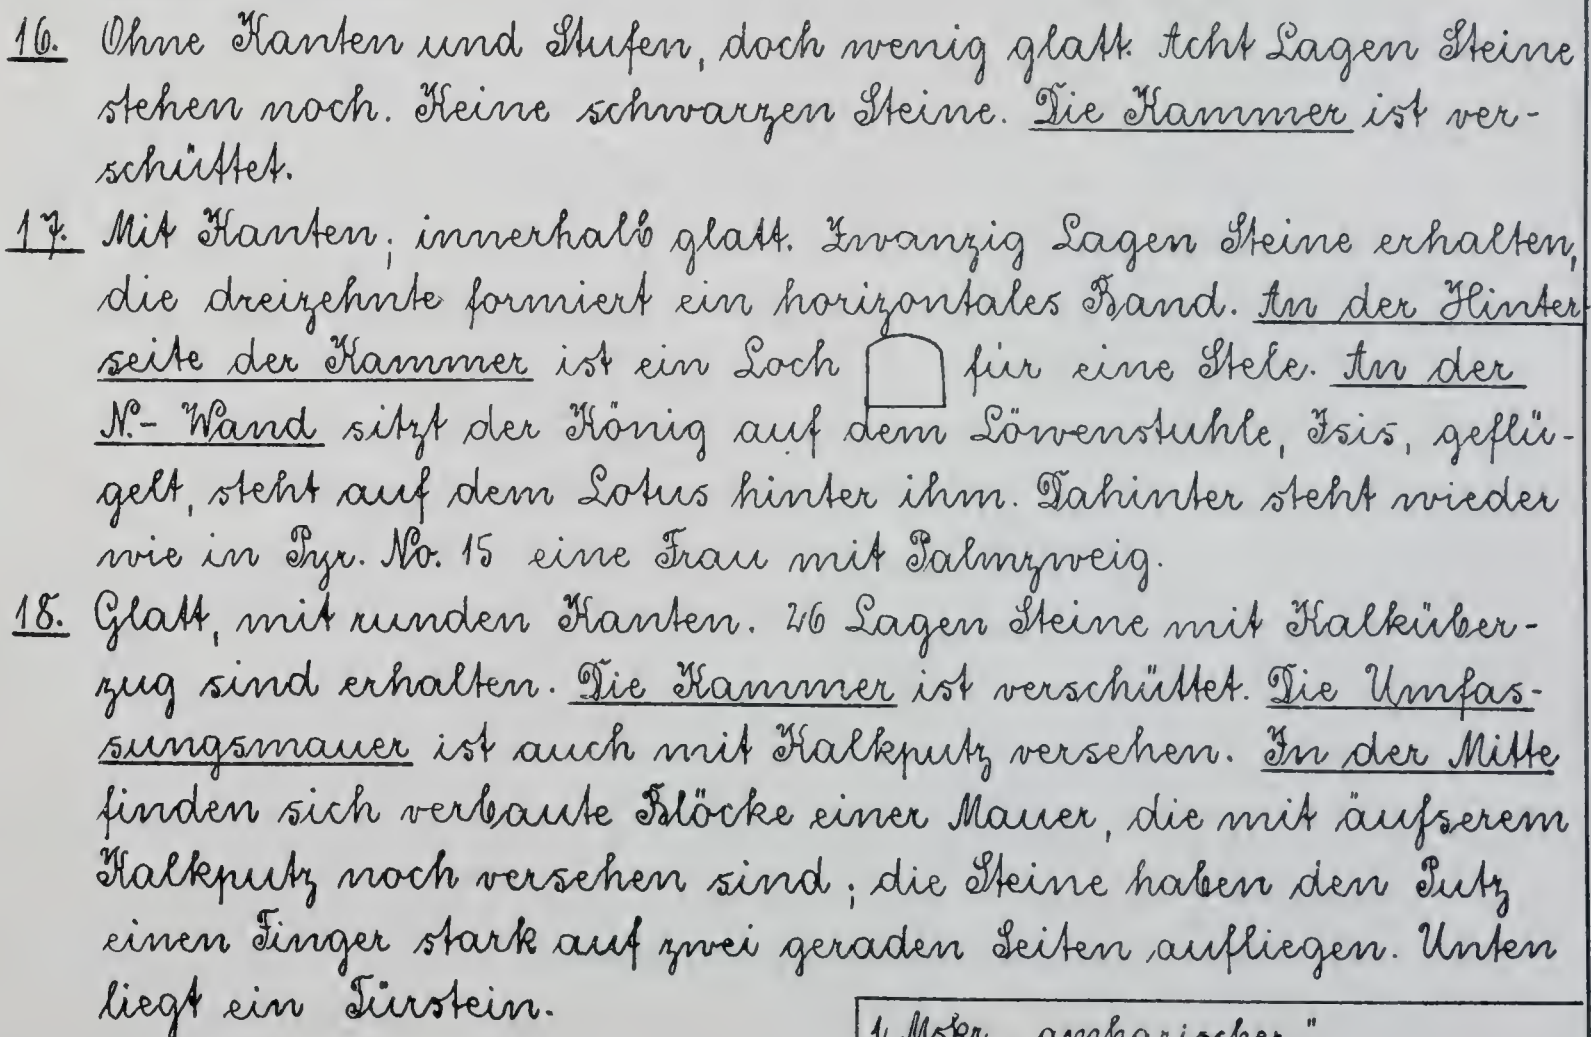 16. Ohne Kanten und Stufen, doch wenig glatt. Acht Lagen Steine
stehen noch. Keine schwarzen Steine. Die Kammer ist ver-
schüttet.
17. Mit Kanten; innerhalb glatt. Zwanzig Lagen Steine erhalten,
die dreizehnte formiert ein horizontales Band. An der Hinter
seite der Kammer ist ein Loch für eine Stele. An der
N.- Wand sitzt der König auf dem Löwenstuhle, Isis, geflü-
gelt, steht auf dem Lotus hinter ihm. Dahinter steht wieder
wie in Pyr. No. 15 eine Frau mit Palmzweig.
18. Glatt, mit runden Kanten. 26 Lagen Steine mit Kalküber-
zug sind erhalten. Die Kammer ist verschüttet. Die Umfas-
sungsmauer ist auch mit Kalkputz versehen. In der Mitte
finden sich verbaute Blöcke einer Mauer, die mit äufserem
Kalkputz noch versehen sind; die Steine haben den Putz
einen Finger stark auf zwei geraden Seiten aufliegen. Unten
liegt ein Türstein.
1. Mskr. „amharischer"